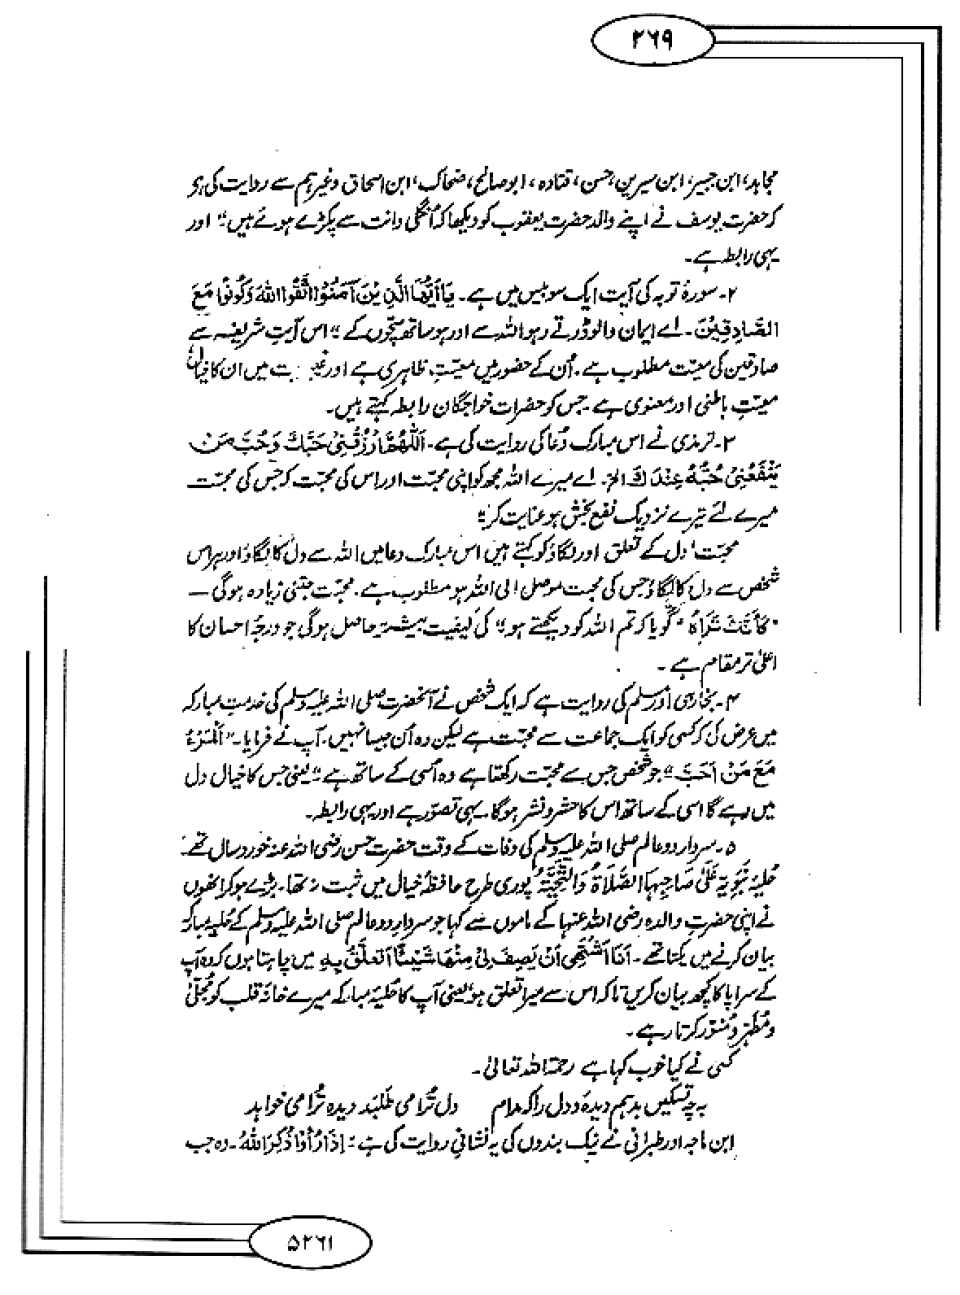 ۳۶۹
مجاہد، ابن جبیر، ابن سیرین، حسن، قتادہ، ابوصالح، ضحاک، ابن اسحاق وغیرہم سے روایت کی ہے
کہ حضرت یوسف نے اپنے والد حضرت یعقوب کو دیکھا کہ اُنگلی دانت سے پکڑے ہوئے ہیں" اور
یہی رابطہ ہے۔
۲۔ سورۂ توبہ کی آیت ایک سو بیس میں ہے۔ یَا اَیُّهَا الَّذِیْنَ آمَنُوا اتَّقُوا اللهَ وَکُونُوا مَعَ
الصَّادِقِیْنَ۔ اے ایمان والو ڈرتے رہو اللہ سے اور ہو ساتھ سچّوں کے" اس آیتِ شریفہ سے
صادقین کی معیّت مطلوب ہے۔ اُن کے حضور میں معیّتِ ظاہری ہے اور غیبت میں ان کا خیال
معیّتِ باطنی اور معنوی ہے۔ جس کو حضرات خواجگان رابطہ کہتے ہیں۔
۳۔ ترمذی نے اس مبارک دُعا کی روایت کی ہے۔ اَللّٰهُمَّ ارْزُقْنِیْ حُبَّكَ وَحُبَّ مَن
یَنْفَعُنِیْ حُبُّهُ عِنْدَكَ الخ۔ اے میرے اللہ مجھ کو اپنی محبّت اور اس کی محبّت کہ جس کی محبّت
میرے لئے تیرے نزدیک نفع بخش ہو عنایت کر"
محبّت، دل کے تعلق اور لگاؤ کو کہتے ہیں اس مبارک دعا میں اللہ سے دل کا لگاؤ اور ہر اس
شخص سے دل کا لگاؤ جس کی محبت موصل الی اللہ ہو مطلوب ہے۔ محبّت جتنی زیادہ ہوگی —
"کَأَنَّكَ تَرَاهُ" گویا کہ تم اللہ کو دیکھتے ہو" کی کیفیت بیشتر حاصل ہوگی جو درجۂ احسان کا
اعلیٰ تر مقام ہے۔
۴۔ بخاری اور مسلم کی روایت ہے کہ ایک شخص نے آنحضرت صلی اللہ علیہ وسلم کی خدمتِ مبارکہ
میں عرض کی کہ کسی کو ایک جماعت سے محبّت ہے لیکن وہ اُن جیسا نہیں۔ آپ نے فرمایا۔ "اَلْمَرْءُ
مَعَ مَنْ اَحَبَّ" جو شخص جس سے محبّت رکھتا ہے وہ اُسی کے ساتھ ہے" یعنی جس کا خیال دل
میں ہے گا اسی کے ساتھ اس کا حشر و نشر ہوگا۔ یہی تصوّر ہے اور یہی رابطہ۔
۵۔ سردارِ دو عالم صلی اللہ علیہ وسلم کی وفات کے وقت حضرت حسن رضی اللہ عنہ خورد سال تھے۔
حلیۂ نبویہ عَلیٰ صَاحِبِہَا الصَّلَاۃُ وَالتَّحِیَّۃُ پوری طرح حافظۂ خیال میں ثبت نہ تھا۔ بڑے ہو کر انھوں
نے اپنی حضرت والدہ رضی اللہ عنہا کے ماموں سے کہا جو سردارِ دو عالم صلی اللہ علیہ وسلم کے حلیۂ مبارکہ
بیان کرنے میں یکتا تھے۔ اَنَا اَشْتَهِی اَنْ یَصِفَ لِیْ مِنْهَا شَیْئًا اَتَعَلَّقُ بِهٖ میں چاہتا ہوں کہ وہ آپ
کے سراپا کا کچھ بیان کریں تاکہ اس سے میرا تعلق ہو یعنی آپ کا حلیۂ مبارکہ میرے خانۂ قلب کو مُجلّیٰ
و مُطہّر و مُنوّر کرتا رہے۔
کسی نے کیا خوب کہا ہے رحمۃ اللہ تعالیٰ۔
بہ چہ تسکین بدہم دیدہ و دل را کہ مدام دل تُرا می طَلَبد دیدہ تُرا می خواہد
ابن ماجہ اور طبرانی نے نیک بندوں کی یہ نشانی روایت کی ہے: اِذَا رُأُوْا ذُکِرَ اللهُ۔ وہ جب
۵۲۶۱